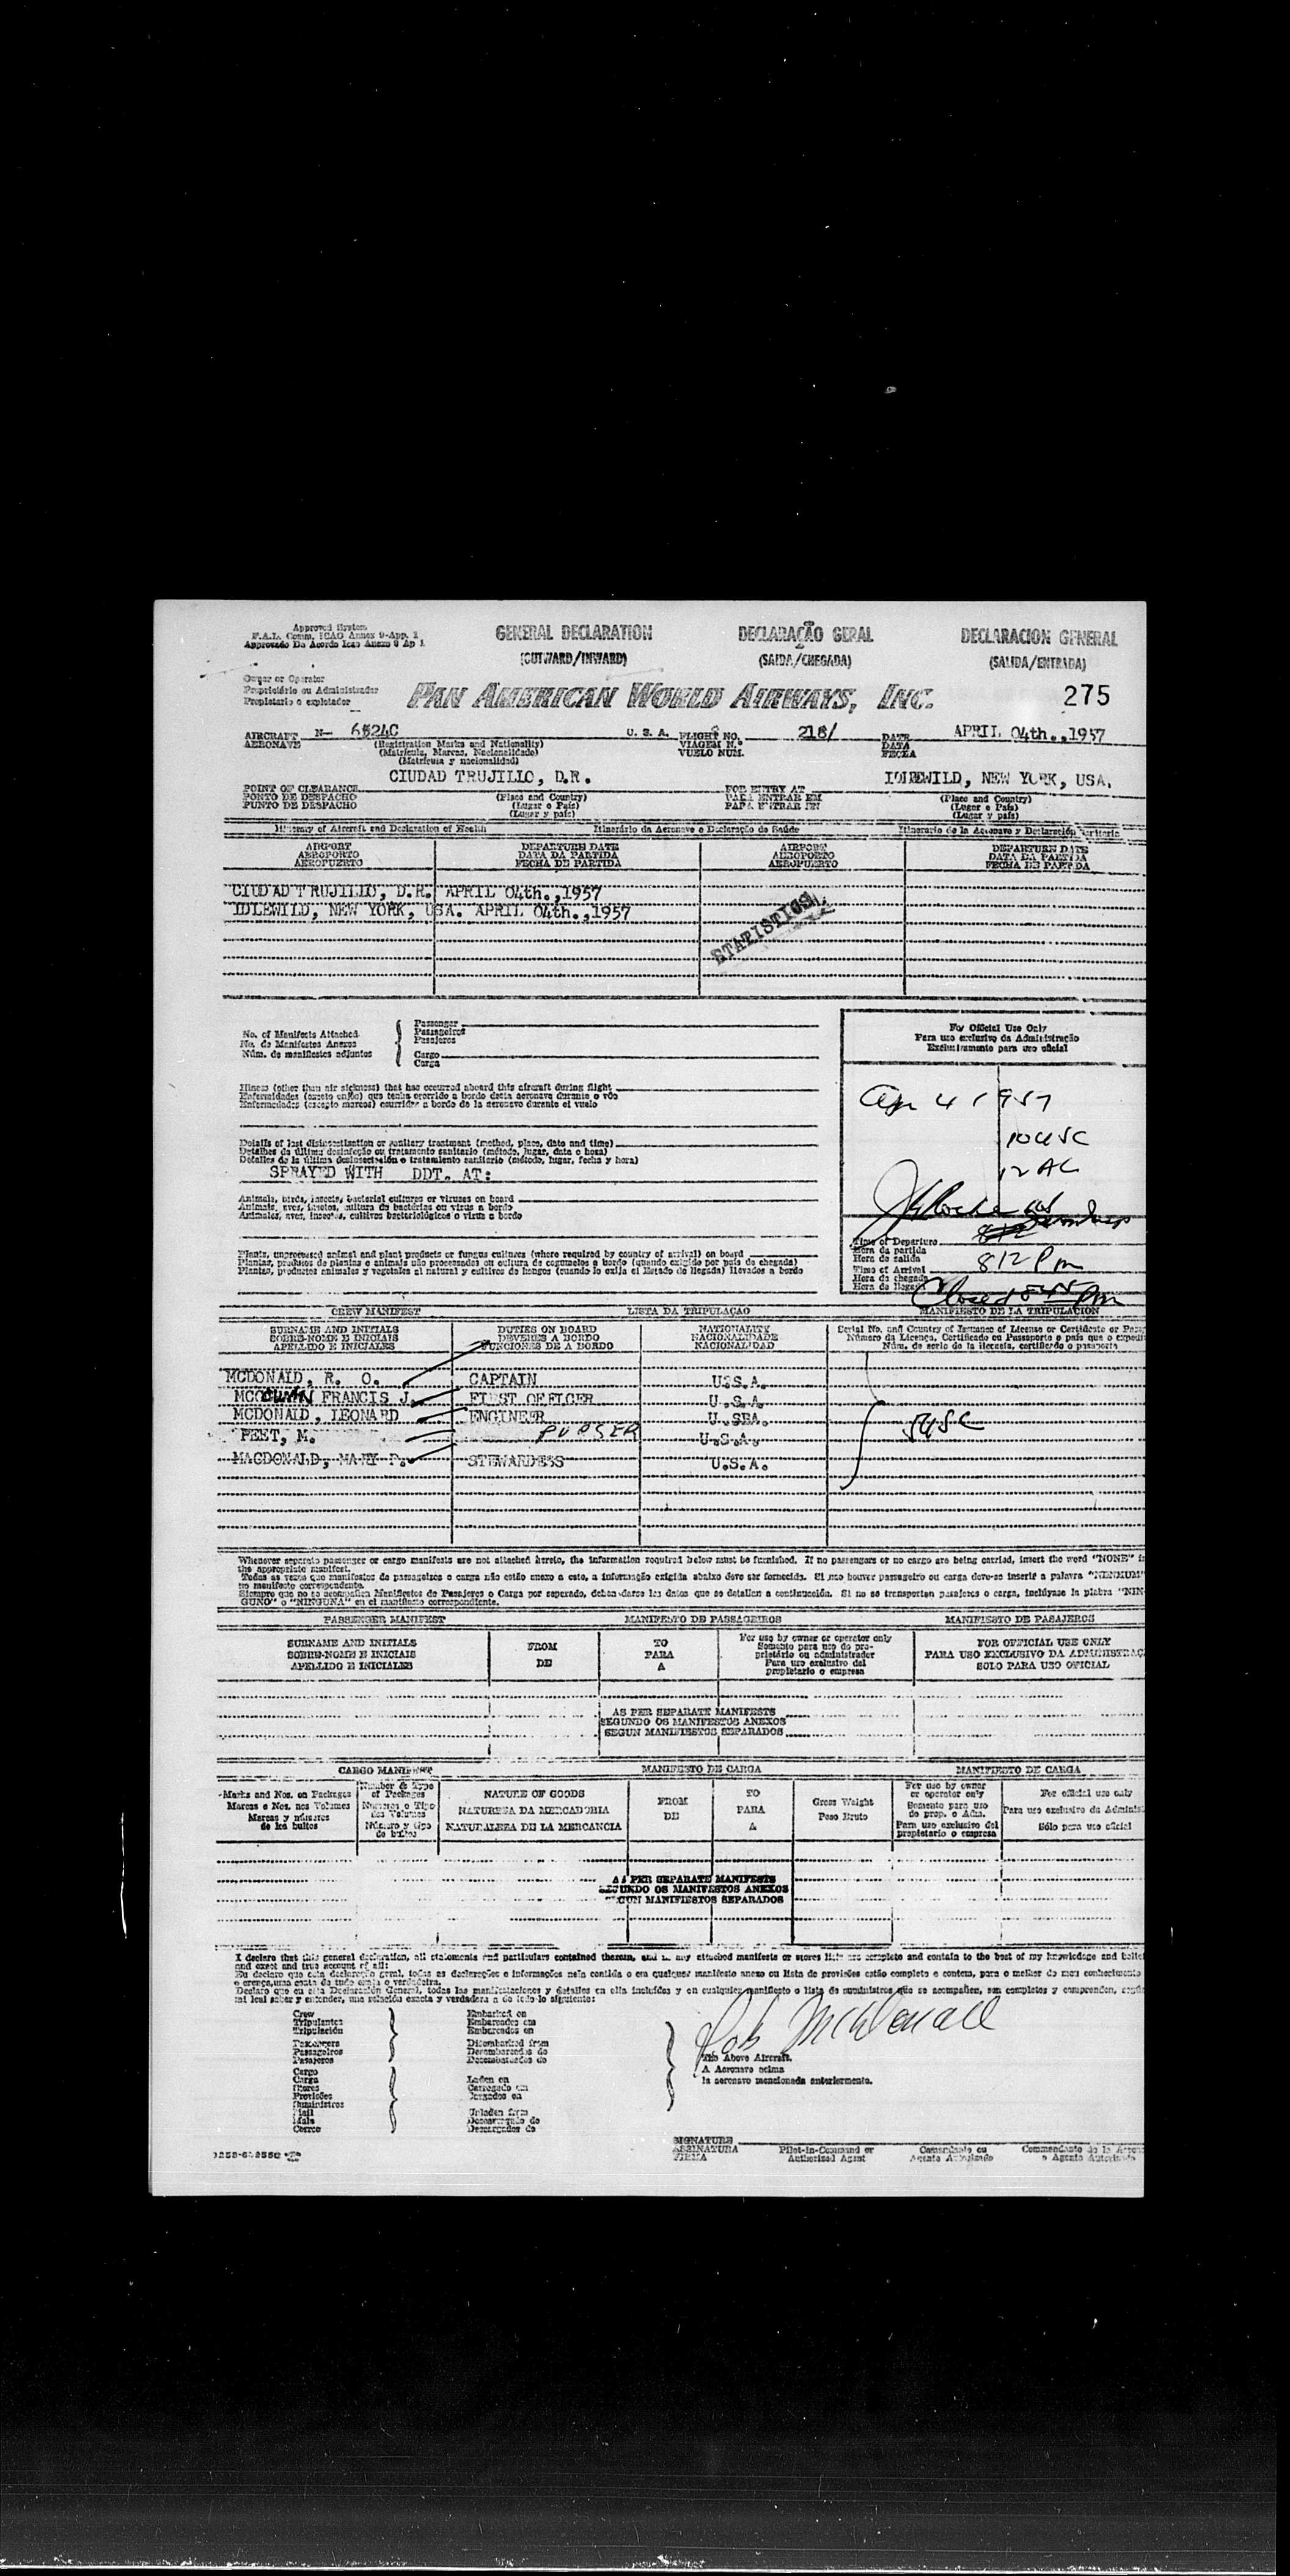 Approved System
F.A.L. Comm. ICAO Annex 9-App. 1
Approvado De Acordo Icao Anexo 9 Ap 1
GENERAL DECLARATION
(OUTWARD/INWARD)
DECLARAÇÃO GERAL
(SAIDA/CHEGADA)
DECLARACION GENERAL
(SALIDA/ENTRADA)
Owner or Operator
Proprietário ou Administrador
Propietario o explotador
PAN AMERICAN WORLD AIRWAYS, INC.
275
AIRCRAFT N- 6524C U. S. A. FLIGHT NO. 218/ DATE APRIL 04th.,1957
AERONAVE (Registration Marks and Nationality) VIAGEM N.º DATA
(Matrícula, Marcas, Nacionalidade) VUELO NUM. FECHA
(Matrícula y nacionalidad)
CIUDAD TRUJILLO, D.R. IDLEWILD, NEW YORK, USA.
POINT OF CLEARANCE FOR ENTRY AT
PONTO DE DESPACHO (Place and Country) PARA ENTRAR EM (Place and Country)
PUNTO DE DESPACHO (Lugar e País) PARA ENTRAR EN (Lugar e País)
(Lugar y país) (Lugar y país)
Itinerary of Aircraft and Declaration of Health Itinerário da Aeronave e Declaração de Saúde Itinerario de la Aeronave y Declaración
AIRPORT DEPARTURE DATE AIRPORT DEPARTURE DATE
AEROPORTO DATA DA PARTIDA AEROPORTO DATA DA PARTIDA
AEROPUERTO FECHA DE PARTIDA AEROPUERTO FECHA DE PARTIDA
CIUDAD TRUJILLO, D.R. APRIL 04th.,1957
IDLEWILD, NEW YORK, USA. APRIL 04th.,1957
STATISTICS
No. of Manifests Attached
No. de Manifestos Anexos
Núm. de manifiestos adjuntos
Passenger
Passageiros
Pasajeros
Cargo
Carga
For Official Use Only
Para uso exclusivo da Administração
Exclusivamente para uso oficial
Apr 4 1957
10 USC
12 AC
Illness (other than air sickness) that has occurred aboard this aircraft during flight
Enfermidades (exceto enjôo) que tenha ocorrido a bordo desta aeronave durante o vôo
Enfermedades (excepto mareos) ocurridas a bordo de la aeronave durante el vuelo
Details of last disinsectisation or sanitary treatment (method, place, date and time)
Detalhes da última desinfeção ou tratamento sanitário (método, lugar, data e hora)
Detalles de la última desinsectación o tratamiento sanitario (método, lugar, fecha y hora)
SPRAYED WITH DDT. AT:
Animals, birds, insects, bacterial cultures or viruses on board
Animais, aves, insetos, cultura de bactérias ou virus a bordo
Animales, aves, insectos, cultivos bacteriológicos o virus a bordo
Time of Departure
Hora da partida
Hora de salida
812 Pm
Time of Arrival
Hora da chegada
Hora de llegada
Closed 845 Pm
Plants, unprocessed animal and plant products or fungus cultures (where required by country of arrival) on board
Plantas, produtos de plantas e animais não processados ou cultura de cogumelos a bordo (quando exigido por país de chegada)
Plantas, productos animales y vegetales al natural y cultivos de hongos (cuando lo exija el Estado de llegada) llevados a bordo
CREW MANIFEST LISTA DA TRIPULAÇAO MANIFIESTO DE LA TRIPULACION
SURNAME AND INITIALS DUTIES ON BOARD NATIONALITY Serial No. and Country of Issuance of License or Certificate or
SOBRE-NOME E INICIAIS DEVERES A BORDO NACIONALIDADE Número da Licença, Certificado ou Passaporte e país que o
APELLIDO E INICIALES FUNCIONES DE A BORDO NACIONALIDAD Núm. de serie de la licencia, certificado o pasaporte
MCDONALD, R. O. CAPTAIN U.S.A.
FRANCIS J. FIRST OFFICER U.S.A.
MCDONALD, LEONARD ENGINEER U.SEA.
PEET, M. PURSER U.S.A.
MACDONALD, MARY P. STEWARDESS U.S.A.
5 USC
Whenever separate passenger or cargo manifests are not attached hereto, the information required below must be furnished. If no passengers or no cargo are being carried, insert the word "NONE" in
the appropriate manifest.
Todas as vezes que manifestos de passageiros o carga não estão anexo a este, a informação exigida abaixo deve ser fornecida. Si não houver passageiro ou carga deve-se inserir a palavra "NENHUM"
no manifesto correspondente.
Siempre que no se acompañen Manifiestos de Pasajeros o Carga por separado, deben darse los datos que se detallan a continuación. Si no se transportan pasajeros o carga, inclúyase la plabra "NIN-
GUNO" o "NINGUNA" en el manifiesto correspondiente.
PASSENGER MANIFEST MANIFESTO DE PASSAGEIROS MANIFIESTO DE PASAJEROS
SURNAME AND INITIALS FROM TO For use by owner or operator only FOR OFFICIAL USE ONLY
SOBRE-NOME E INICIAIS DE PARA Somente para uso do pro- PARA USO EXCLUSIVO DA ADMINISTRAÇ
APELLIDO E INICIALES A prietário ou administrador SOLO PARA USO OFICIAL
Para uso exclusivo del
propietario o empresa
AS PER SEPARATE MANIFESTS
SEGUNDO OS MANIFESTOS ANEXOS
SEGUN MANIFIESTOS SEPARADOS
CARGO MANIFEST MANIFESTO DE CARGA MANIFIESTO DE CARGA
Marks and Nos. on Packages Number & Type of Packages NATURE OF GOODS FROM TO Gross Weight For use by owner or operator only For official use only
Marcas e Nos. nos Volumes Numeros e Tipo dos Volumes NATUREZA DA MERCADORIA DE PARA Peso Bruto Somente para uso do prop. o Adm. Para uso exclusivo da Adminis
Marcas y números de los bultos Número y tipo de bultos NATURALEZA DE LA MERCANCIA A Para uso exclusivo del propietario o empresa Sólo para uso oficial
AS PER SEPARATE MANIFESTS
SEGUNDO OS MANIFESTOS ANEXOS
SEGUN MANIFIESTOS SEPARADOS
I declare that this general declaration, all statements and particulars contained therein, and in any attached manifests or stores lists are complete and contain to the best of my knowledge and belief
and exact and true account of all:
Eu declaro que esta declaração geral, todas as declarações e informações nela contida o em qualquer manifesto anexo ou lista de provisões estão completo e contem, para o melhor do meu conhecimento
e crença, uma conta de tudo exata e verdadeira.
Declaro que en esta Declaración General, todas las manifestaciones y detalles en ella incluidos y en cualquier manifiesto o lista de suministros que se acompañen, son completos y comprenden,
mi leal saber y entender, una relación exacta y verdadera a de todo lo siguiente:
Bob McDonald
Crew Embarked on
Tripulantes Embarcados em
Tripulación Embarcados en
Passengers Disembarked from
Passageiros Desembarcados de
Pasajeros Desembarcados de
Cargo
Carga Laden on
Stores Carregado em
Provisões Cargados en
Suministros
Mail Unladen from
Mala Descarregado de
Correo Descargados de
The Above Aircraft.
A Aeronave acima
la aeronave mencionada anteriormente.
SIGNATURE
ASSINATURA Pilot-in-Command or Comandante ou
FIRMA Authorized Agent Agente Autorizado